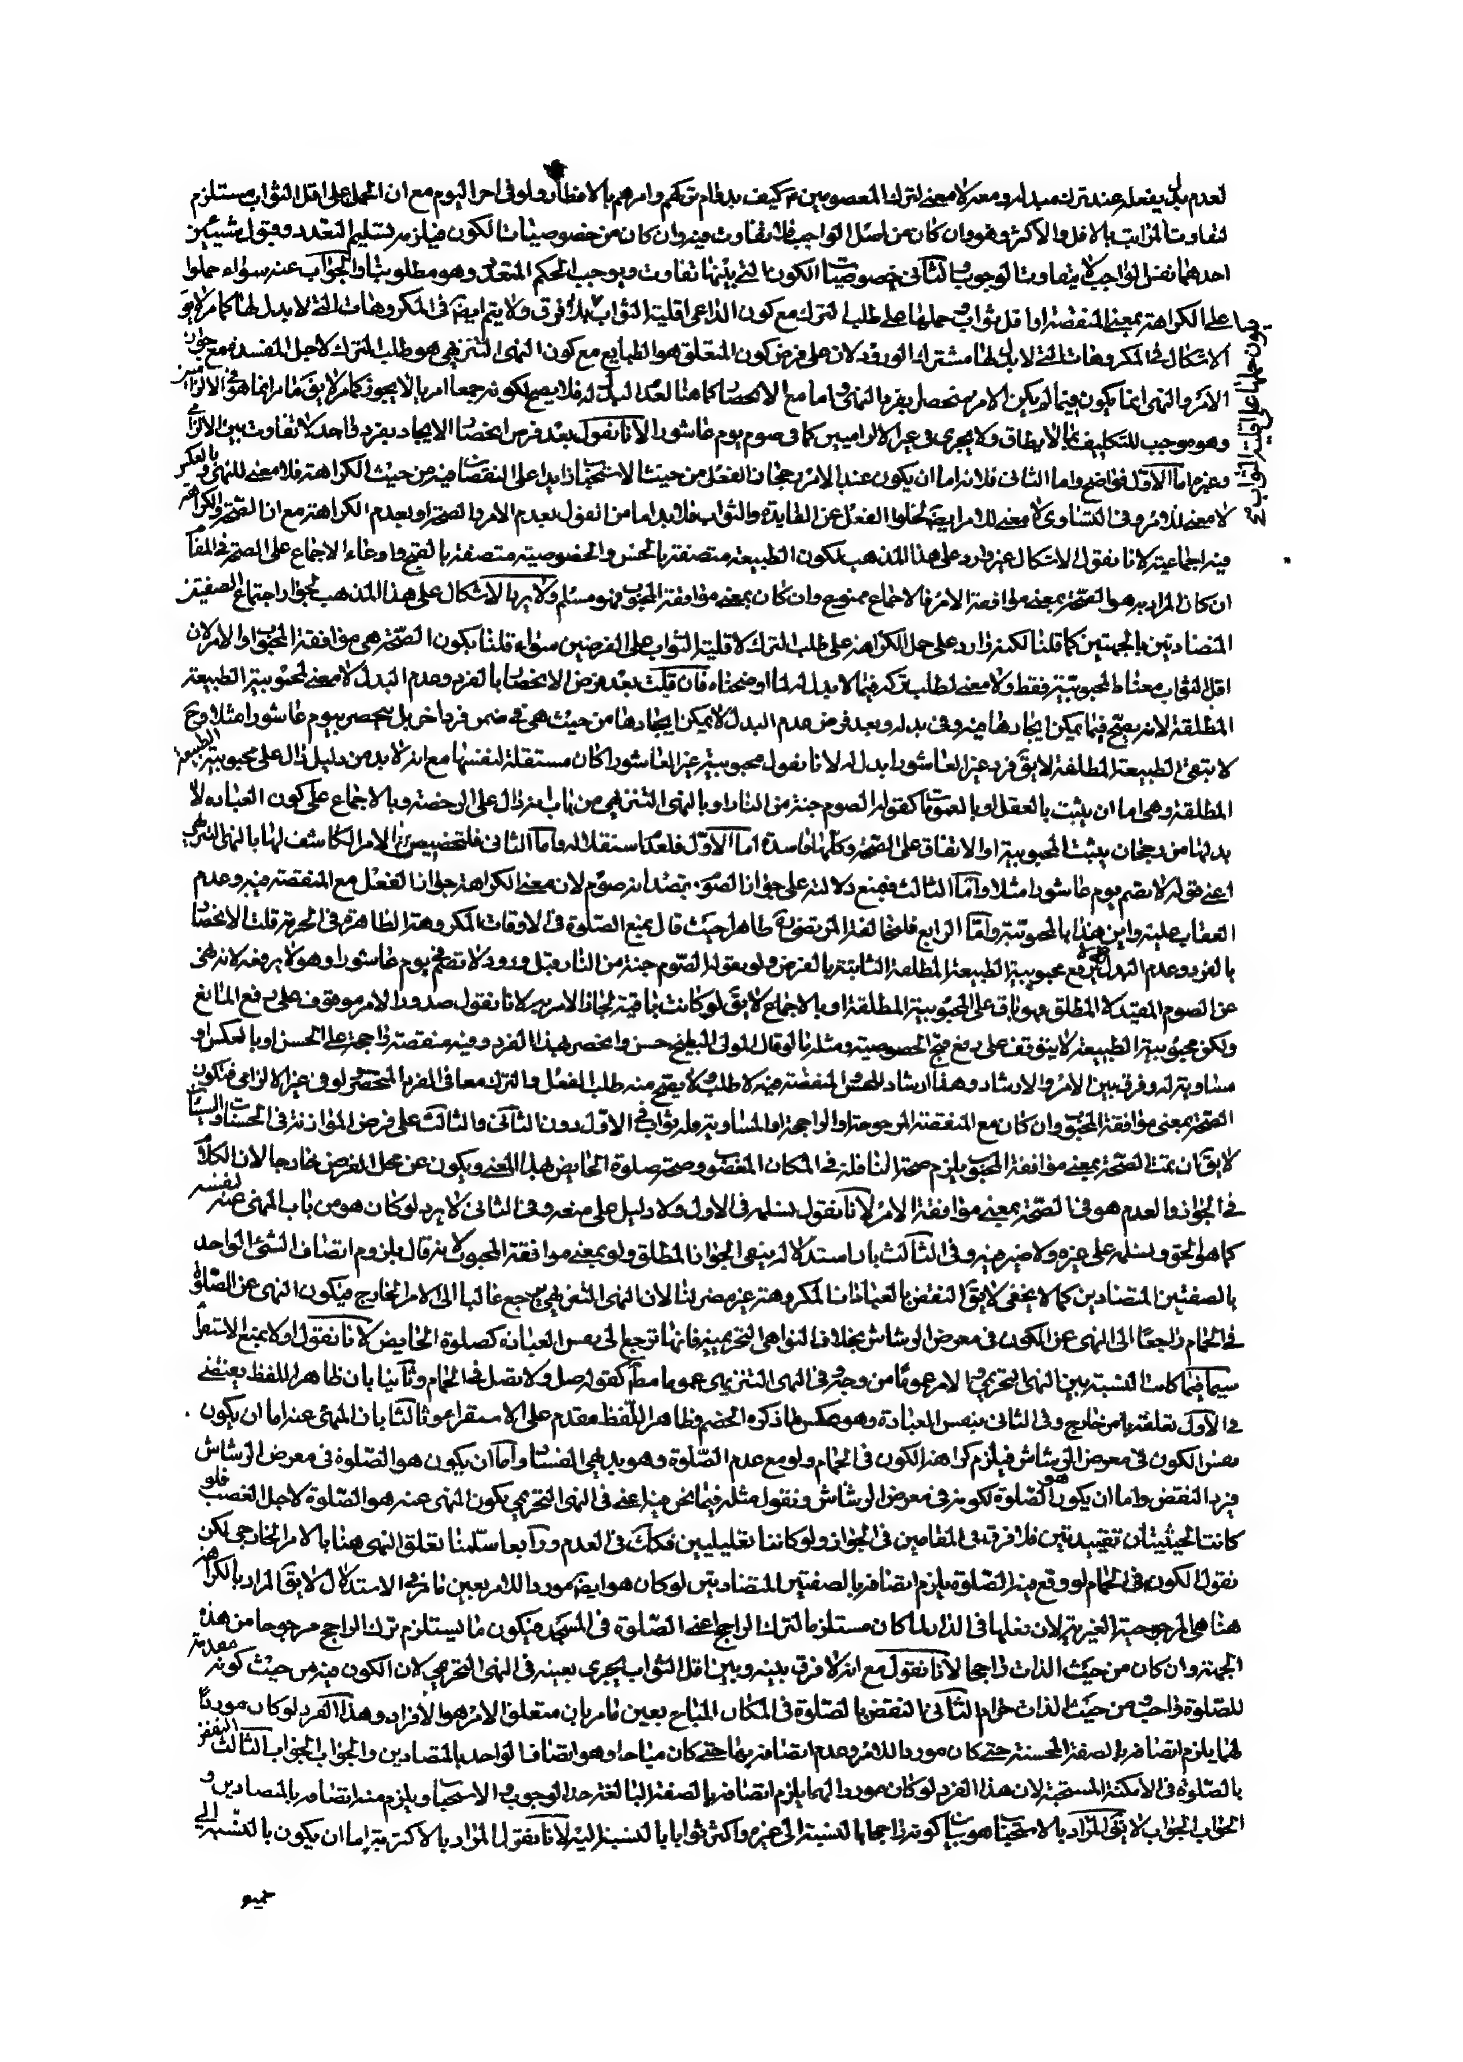 لعدم بدل يفعله عند تركه مبدله ومعه لا معنى لترك المعصومين ع كيف بدوام تركهم وامرهم بالافطار ولو فى اخر اليوم مع ان الحمل على اقل الثواب مستلزم
لتفاوت المراتب بالاقل والاكثر وهو وان كان من اصل الواجب فلا تفاوت فيه وان كان من خصوصيات الكون فيلزم تسليم التعدد وقبول شيئين
احدهما نفس الواجب لا يتفاوت الوجوب والثانى خصوصيات الكون التى بينها تفاوت ويوجب الحكم المتعدد وهو مطلوبنا والجواب عنه سواء حملوا
على الكراهة بمعنى المنقصة او اقل ثواب حملها على طلب الترك مع كون الداعى اقلية الثواب بلا فرق ولا يتم ايضا فى المكروهات التى لا بدل لها كما مر لا يق
الاشكال فى المكروهات التى لا بدل لها مشترك الورود لان على فرض كون المتعلق هو الطبايع مع كون النهى التنزيهى هو طلب الترك لاجل المفسدة مع جواز
الامر والنهى انما يكون فيما لم يكن الامر منحصل بفرد النهى واما مع الانحصار كما هنا لعدم البدل له فلا يصح لكونه رجعا امر بالا يجوز كما مر لا يق ما مر انما هو فى الالزاميين
وهو موجب للتكليف بما لا يطاق ولا يجرى فى غير الالزاميين كما فى صوم يوم عاشورا لانا نقول بعد فرض انحصار الايجاد بفرد واحد لا تفاوت بين الالزامى
وغيره اما الاول فواضح واما الثانى فلانه اما ان يكون عند الامر رجحان الفعل من حيث الاستحباب زايدا على النقصان فيه من حيث الكراهة فلا معنى للنهى وبالعكس
لا معنى للامر وفى التساوى لا معنى للامر ايضا لخلو الفعل عن الفايدة والثواب فلا بد اما من القول بعدم الامر والصحة او بعدم الكراهة مع ان الصحة والكراهة
فيه اجماعية لانا نقول الاشكال غير وارد على هذا المذهب لكون الطبيعة متصفة بالحسن والخصوصية متصفة بالقبح وادعاء الاجماع على الصحة فى المقام
ان كان المراد به هو الصحة بمعنى موافقة الامر فالاجماع ممنوع وان كان بمعنى موافقة المحبوب فهو مسلم ولا يرد الاشكال على هذا المذهب لجواز اجتماع الصفتين
المتضادتين بالجهتين كما قلنا لكنه وارد على حمل الكراهة على طلب الترك لاقلية الثواب على الفرضين سواء قلنا بكون الصحة هى موافقة المحبوب او الامر لان
اقل الثواب معناه المحبوبية فقط ولا معنى لطلب تركه فيما لا بدل له لما اوضحناه فان قلت بعد فرض الانحصار بالفرد وعدم البدل لا معنى لمحبوبية الطبيعة
المطلقة لانه يصح فيما يمكن ايجادها فيه وفى بدله وبعد فرض عدم البدل لا يمكن ايجادها من حيث هى فى ضمن فرد اخر بل ينحصر بيوم عاشورا مثلا وح
لا يبقى الطبيعة المطلقة لا يق فرد غير العاشورا بدل له لانا نقول محبوبية غير العاشورا كان مستقلة لنفسها مع انه لا بد من دليل دال على محبوبية الطبيعة
المطلقة وهى اما ان يثبت بالعقل او بالعمومات كقوله الصوم جنة من النار او بالنهى التنزيهى من باب انه دال على الرخصة وبالاجماع على كون العبادة لا
بد لها من رجحان يثبت المحبوبية او الاتفاق على الصحة وكلها فاسدة اما الاول فلعدم استقلاله واما الثانى فلتخصيص الامر الكاشف لها بالنهى التنزيهى
اعنى قوله لا تصم يوم عاشورا مثلا واما الثالث فبمنع دلالته على جواز الصوم بقصد انه صوم لان معنى الكراهة جواز الفعل مع المنقصة فيه وعدم
العقاب عليه واين هذا بالمحبوبية واما الرابع فلمخالفة المرتضى ره ظاهرا حيث قال بمنع الصلوة فى الاوقات المكروهة الظاهرة فى الحرمة قلت الانحصار
بالفرد وعدم البدل لا يرفع محبوبية الطبيعة المطلقة الثابتة بالفرض ولو بقوله الصوم جنة من النار قبل ورود لا تصم يوم عاشورا وهو لا يرفعه لانه نهى
عن الصوم المقيد لا المطلق فهو باق على المحبوبية المطلقة او بالاجماع لا يق لو كانت باقية لجاز الامر به لانا نقول صدور الامر موقوف على رفع المانع
ولكن محبوبية الطبيعة لا يتوقف على رفع قبح الخصوصية ومثله ما لو قال المولى البطيخ حسن وانحصر بهذا الفرد وفيه منقصة راجحة على الحسن او بالعكس او
مساوية له وفرق بين الامر والارشاد وهذا ارشاد للحسن والمنقصة فيه لا طلب ولا يقبح منه طلب الفعل والترك معا فى الفرد المنحصر ولو فى غير الالزامى فيكون
الصحة بمعنى موافقة المحبوب وان كان مع المنقصة المرجوحة او الراجحة او المساوية وله ثواب فى الاول دون الثانى والثالث على فرض الموازنة فى الحسنات والسيئات
لا يق ان بنت الصحة بمعنى موافقة المحبوب يلزم صحة النافلة فى المكان المغصوب وصحة صلوة الحايض بهذا المعنى ويكون عن محل الفرض خارجا لان الكلام
فى الجواز والعدم هو فى الصحة بمعنى موافقة الامر لانا نقول نسلمه فى الاول ولا دليل على منعه وفى الثانى لا يرد لو كان هو من باب النهى عنه لنفسه
كما هو الحق ونسلمه على غيره ولا ضير فيه وفى الثالث بان استدلاله ينفى الجواز المطلق ولو بمعنى موافقة المحبوب لانه قال بلزوم اتصاف الشئ الواحد
بالصفتين المتضادين كما لا يخفى لا يق النقض بالعبادات المكروهة غير مضر لنا لان النهى التنزيهى يرجع غالبا الى الامر الخارج فيكون النهى عن الصلوة
فى الحمام راجعا الى النهى عن الكون فى معرض الرشاش بخلاف النواهى التحريمية فانها ترجع الى نفس العبادة كصلوة الحايض لانا نقول اولا بمنع الاستقراء
سيما فيما كانت النسبة بين النهى التحريمى والامر عموما من وجه وفى النهى التنزيهى عموما مطلقا كقوله صل ولا تصل فى الحمام وثانيا بان ظاهر اللفظ يقتضى
فى الاول تعلقه بامر خارج وفى الثانى بنفس العبادة وهو عكس ما ذكره الخصم فظاهر اللفظ مقدم على الاستقراء وثالثا بان المنهى عنه اما ان يكون
نفس الكون فى معرض الرشاش فيلزم كراهة الكون فى الحمام ولو مع عدم الصلوة وهو بديهى الفساد واما ان يكون هو الصلوة فى معرض الرشاش
فيرد النقض واما ان يكون هو الصلوة لكونه فى معرض الرشاش ونقول مثله فيما نحن فيه اعنى فى النهى التحريمى بكون النهى عنه هو الصلوة لاجل الغصب فلو
كانت الحيثيتان تقييديتين فلا فرق فى المقامين فى الجواز ولو كانتا تعليليين فكك فى العدم ورابعا سلمنا تعلق النهى هنا بالامر الخارجى لكن
نقول الكون فى الحمام لو وقع فيه الصلوة يلزم اتصافه بالصفتين المتضادتين لو كان هو ايضا موردا للامر بعين ما مر فى الاستدلال لا يق المراد بالكراهة
هنا هى المرجوحية الغيرية لان فعلها فى الدار لما كان مستلزما لترك الراجح اعنى الصلوة فى المسجد فيكون ما يستلزم ترك الراجح مرجوحا من هذه
الجهة وان كان من حيث الذات راجحا لانا نقول مع انه لا فرق بينه وبين اقل الثواب يجرى بعينه فى النهى التحريمى لان الكون فيه من حيث كونه مقدمة
للصلوة واجب ومن حيث الذات حرام الثانى النقض بالصلوة فى المكان المباح بعين ما مر بان متعلق الامر هو الافراد وهذا الفرد لو كان موردا
لهما يلزم اتصافه بالصفة الحسنة حتى كان موردا للامر وعدم اتصافه بها حتى كان مباحا وهو اتصاف الواحد بالمتضادين والجواب الجواب الثالث النقض
بالصلوة فى الامكنة المستحبة لان هذا الفرد لو كان موردا لهما يلزم اتصافه بالصفة البالغة حد الوجوب والاستحباب ويلزم منه اتصافه بالمتضادين و
الجواب الجواب لا يق المراد بالاستحباب هو بيان كونه راجحا بالنسبة الى غيره واكثر ثوابا بالنسبة اليه لانا نقول المراد بالاكثرية اما ان يكون بالنسبة الى